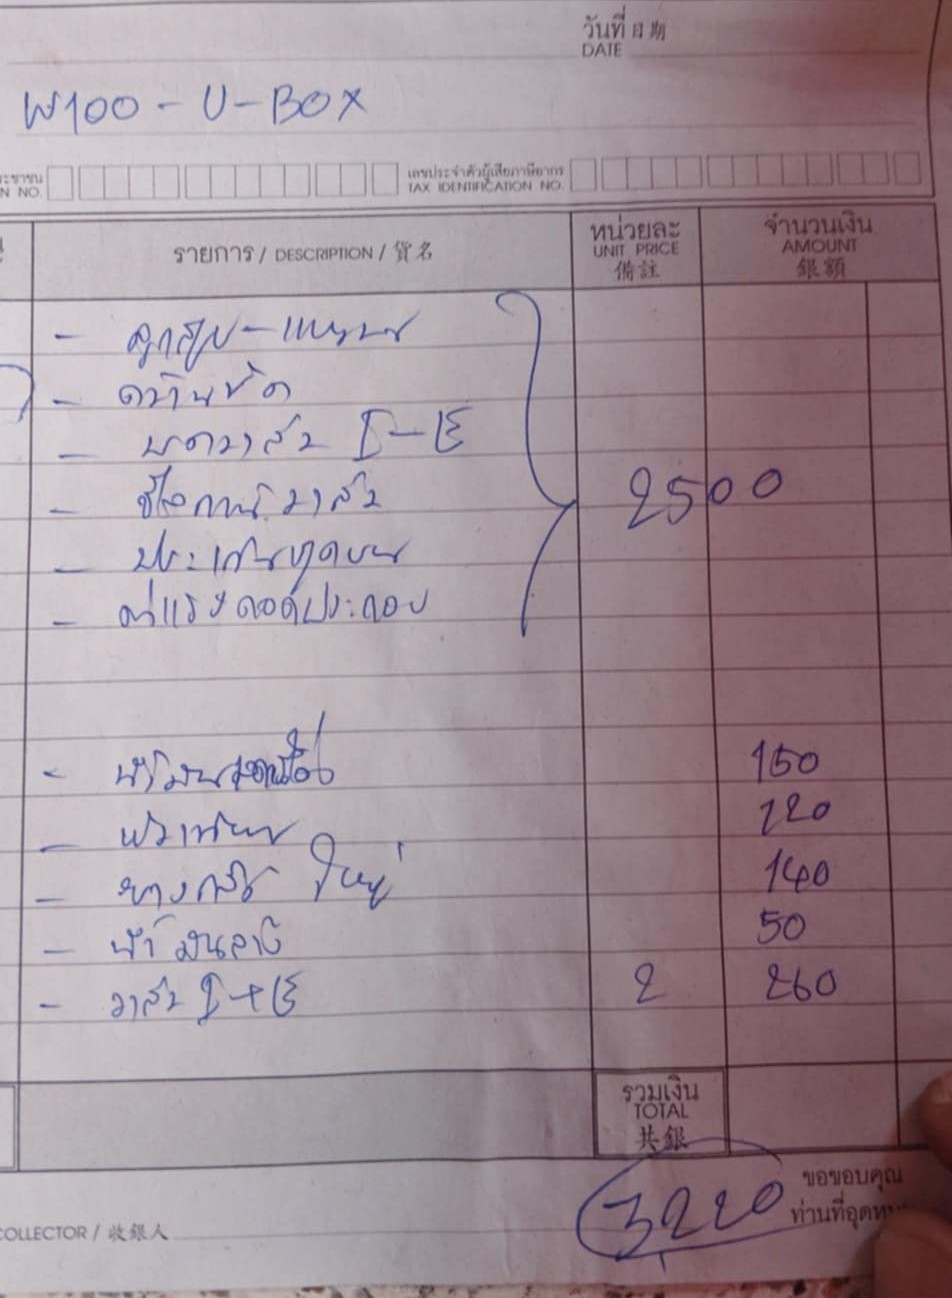 วันที่ 日期
DATE
W100 - U-BOX
ระชาชน
N NO.
เลขประจำตัวผู้เสียภาษีอากร
TAX IDENTIFICATION NO.
รายการ / DESCRIPTION / 貨名
หน่วยละ
UNIT PRICE
備註
จำนวนเงิน
AMOUNT
銀額
- ลูกสูบ-แหวน
- คว้านขัด
- บดวาล์ว I-E
- ซีลก้านวาล์ว
2500
- ประเก็นชุดบน
- ค่าแรงถอดประกอบ
- น้ำมันเครื่อง 150
- หัวเทียน 120
- ใหญ่ 140
- น้ำมันล้าง 50
- วาล์ว I+E 2 260
รวมเงิน
TOTAL
共銀
3220
ขอขอบคุณ
ท่านที่อุดห
COLLECTOR / 收銀人